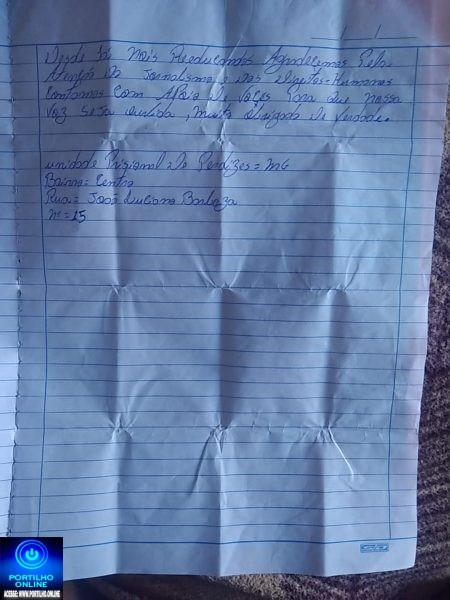 Desde já Nois Reeducandos Agradecemos Pela
Atenção Do Jornalismo e Dos Direitos=Humanos
Contamos Com Apoio De Voçes Para que Nossa
Voz Seja Ouvida, Muito Obrigado De Verdade.
unidade Prisional De Perdizes=MG
Bairro= Centro
Rua= José Luciano Barboza
Nº=15
PORTILHO
ONLINE
ACESSE: WWW.PORTILHO.ONLINE